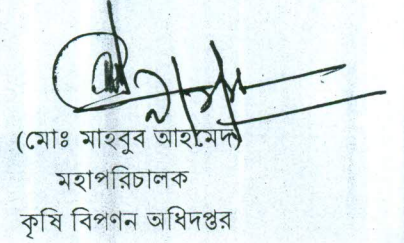 (মোঃ মাহবুব আহমেদ)
মহাপরিচালক
কৃষি বিপণন অধিদপ্তর